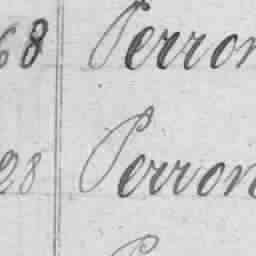 68 Perron
28 Perron